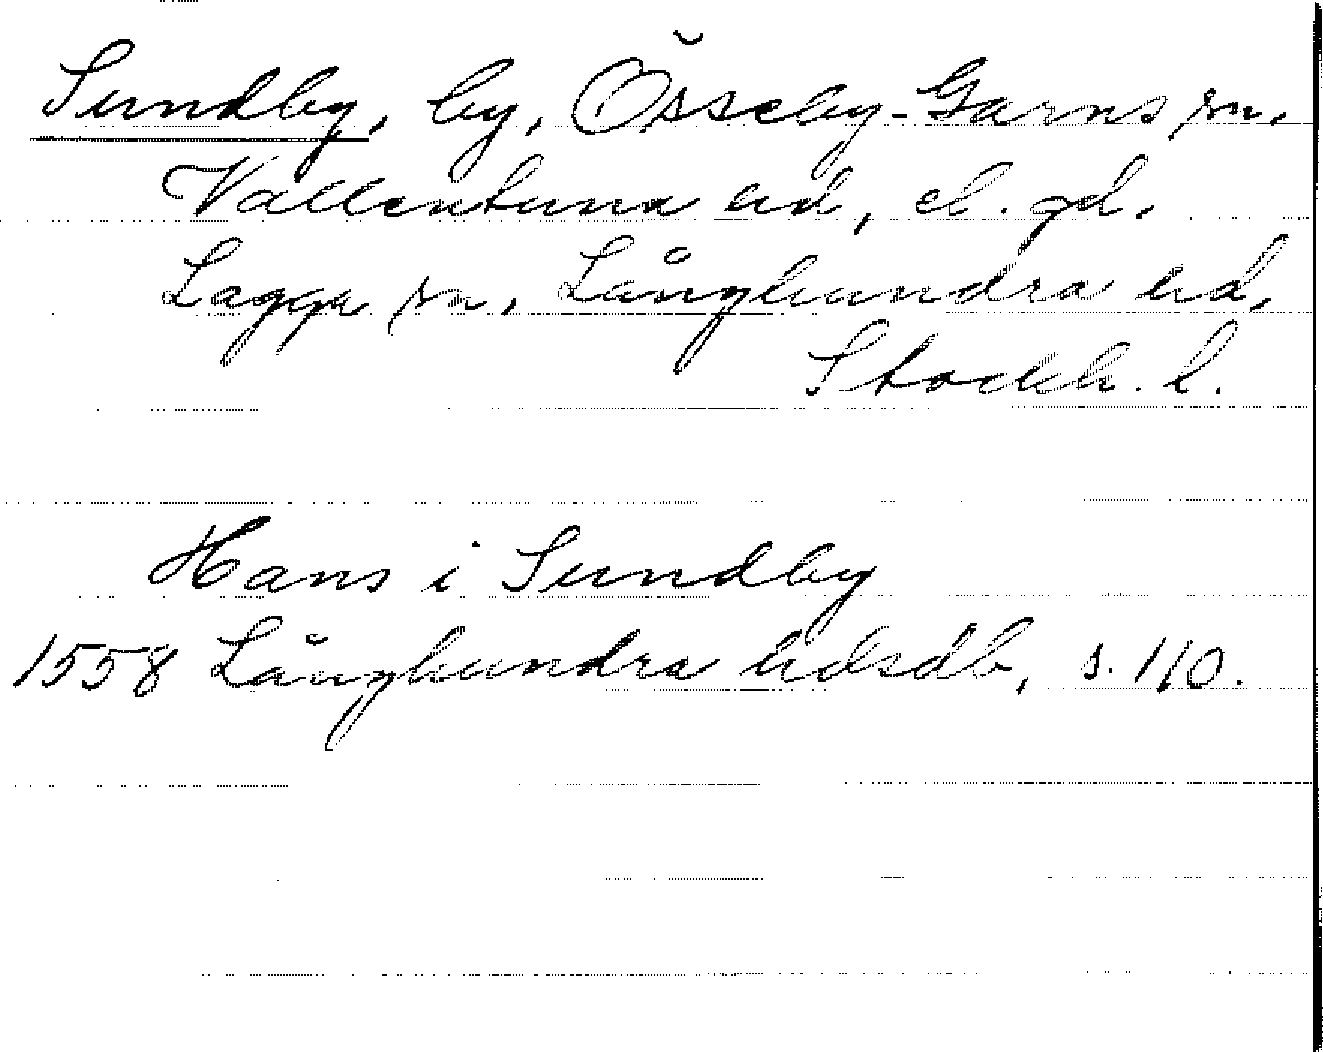 Sundby, by, Össeby-Garns sn.
Vallentuna hd, el. gd.
Lagga sn, Långhundra hd,
Stockh. l.
Hans i Sundby
1558 Långhundra hdsdb, s. 110.